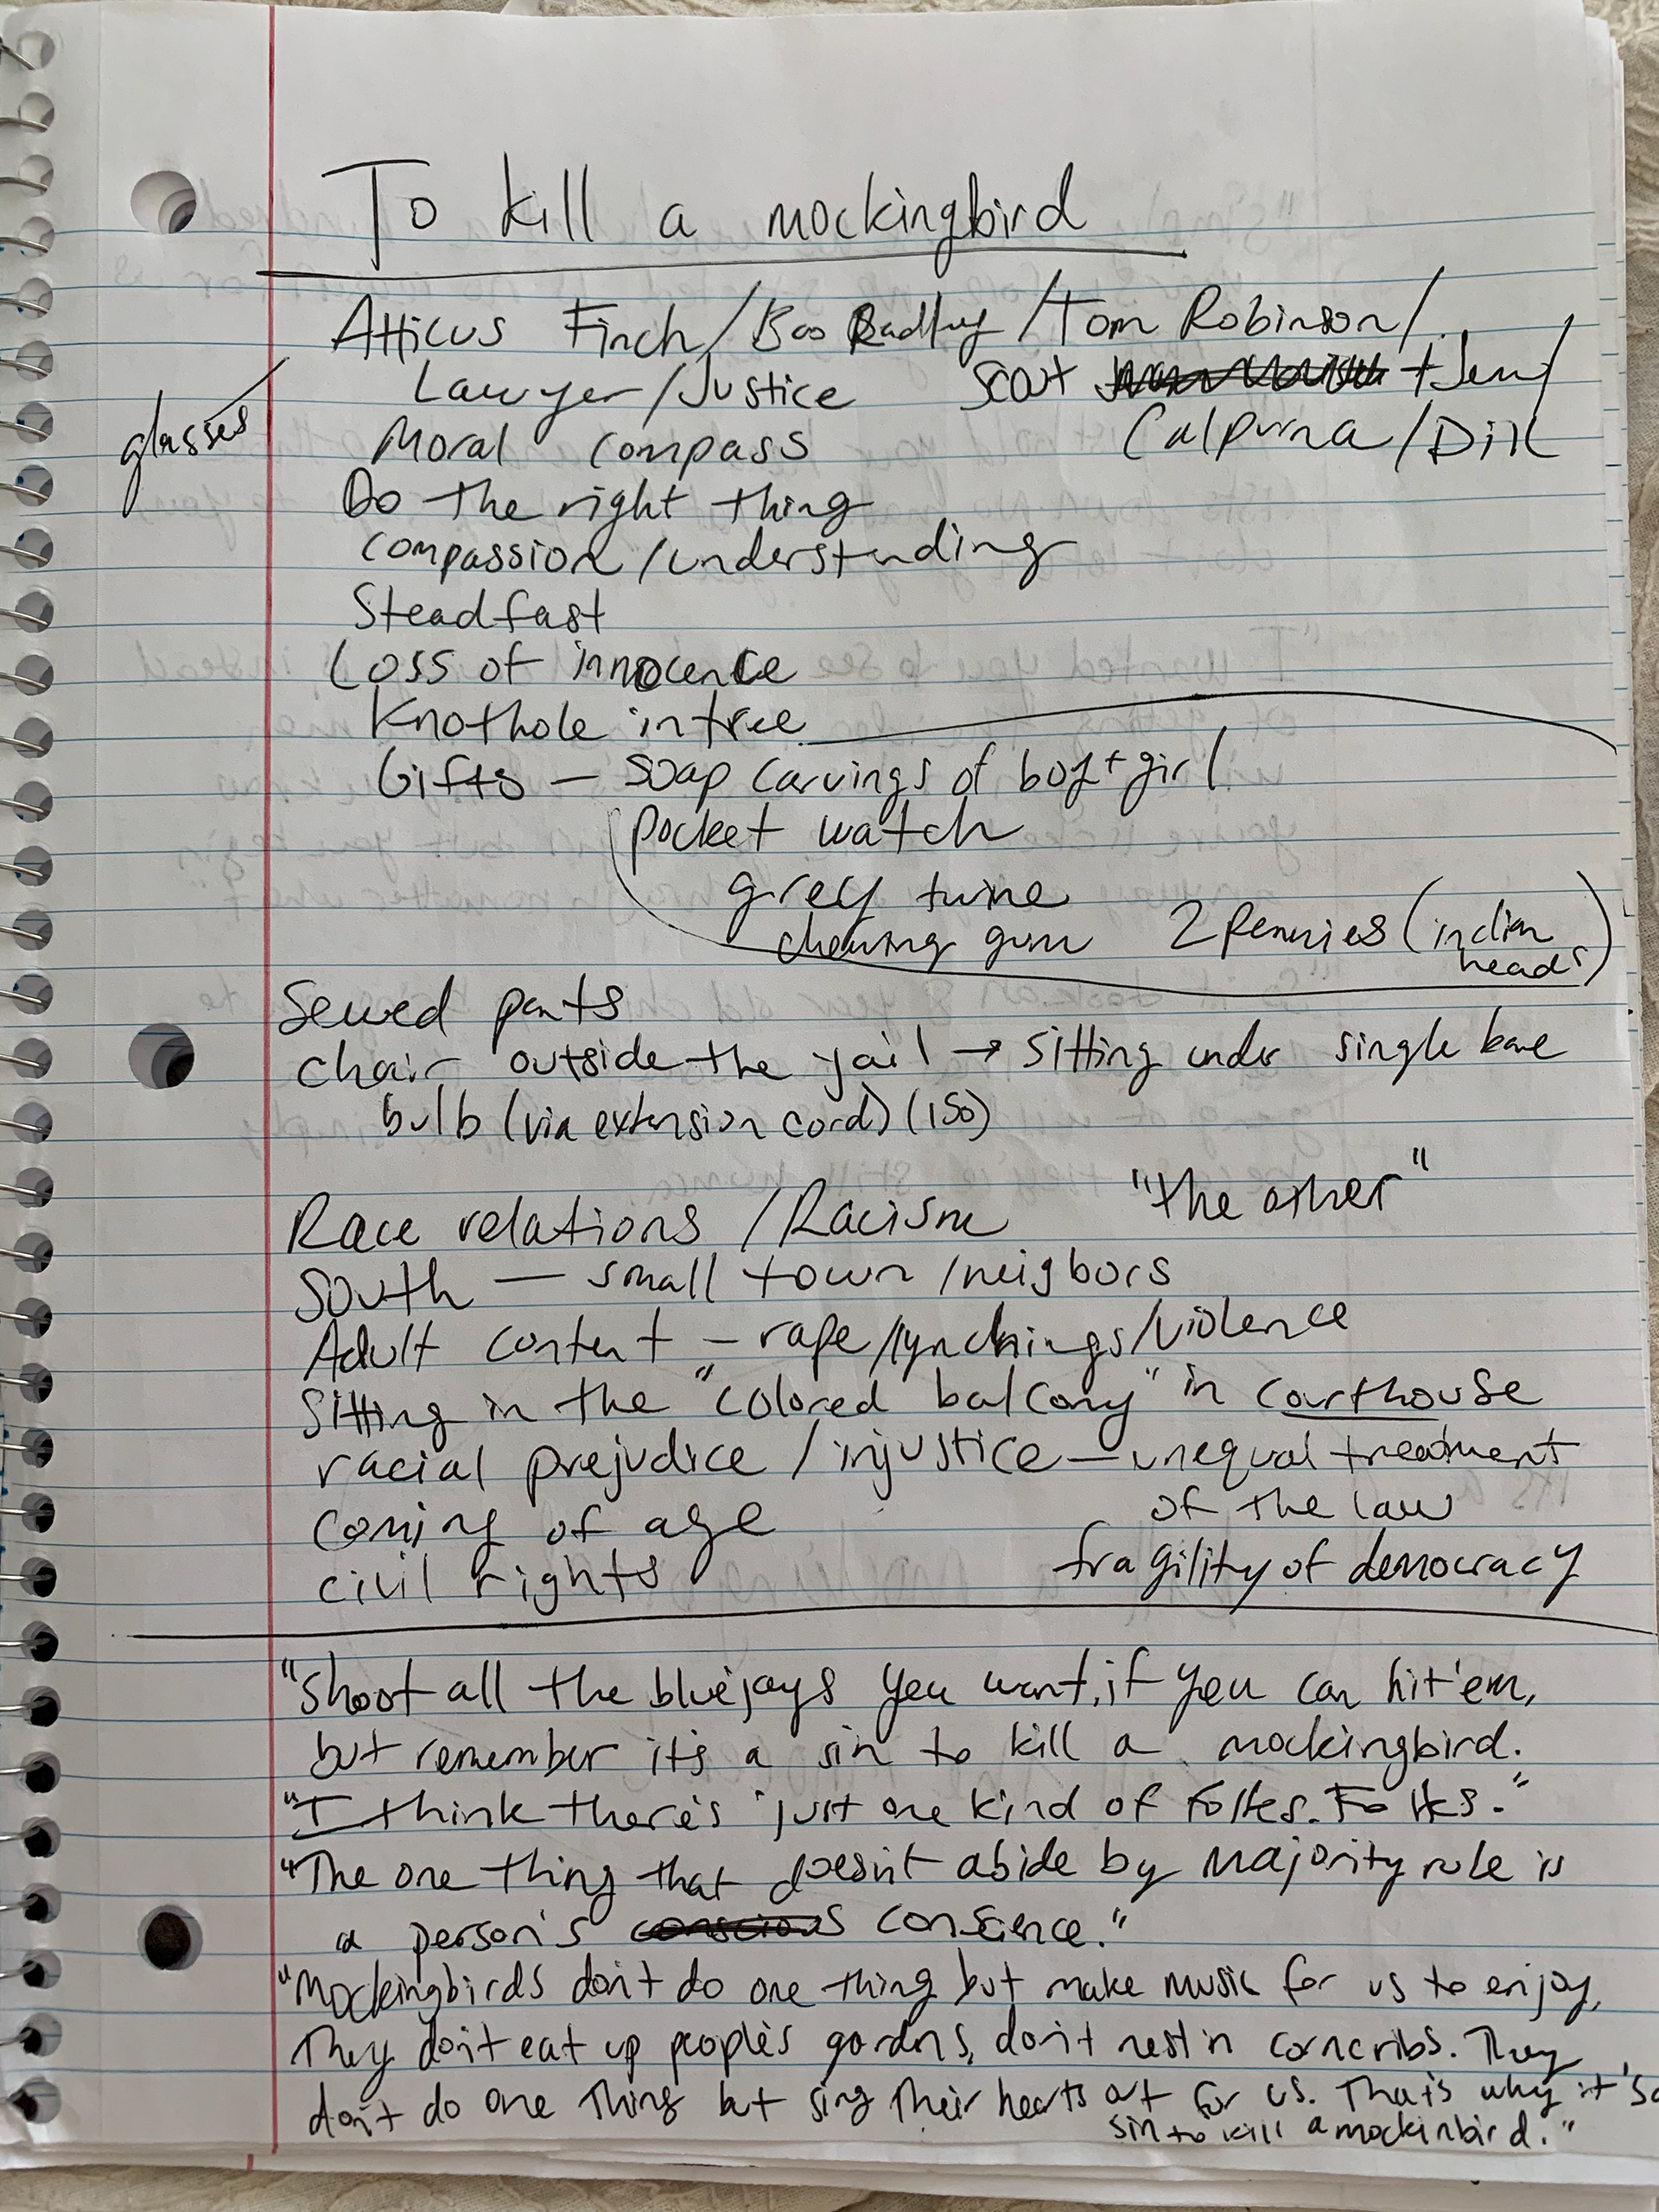 To kill a mockingbird
Atticus Finch/Boo Radley/Tom Robinson/
Lawyer/Justice Scout + Jem/
glasses
Moral compass Calpurna/Dill
Do the right thing
compassion/understanding
Steadfast
Loss of innocence
Knothole in tree
Gifts — soap carvings of boy + girl
pocket watch
grey twine
chewing gum 2 pennies (indian
heads)
Sewed pants
chair outside the jail → sitting under single bare
bulb (via extension cord) (150)
Race relations /Racism "the other"
South — small town /neigbors
Adult content — rape/lynchings/violence
Sitting in the "colored balcony" in courthouse
racial prejudice / injustice — unequal treatment
coming of age of the law
civil rights fragility of democracy
"Shoot all the bluejays you want, if you can hit 'em,
but remember it's a sin to kill a mockingbird.
"I think there's just one kind of Folkes. Folks."
"The one thing that doesn't abide by majority rule is
a person's conscious conscience."
"Mockingbirds don't do one thing but make music for us to enjoy.
They don't eat up people's gardens, don't nest in corncribs. They
don't do one thing but sing their hearts out for us. That's why it's a
sin to kill a mockinbird."